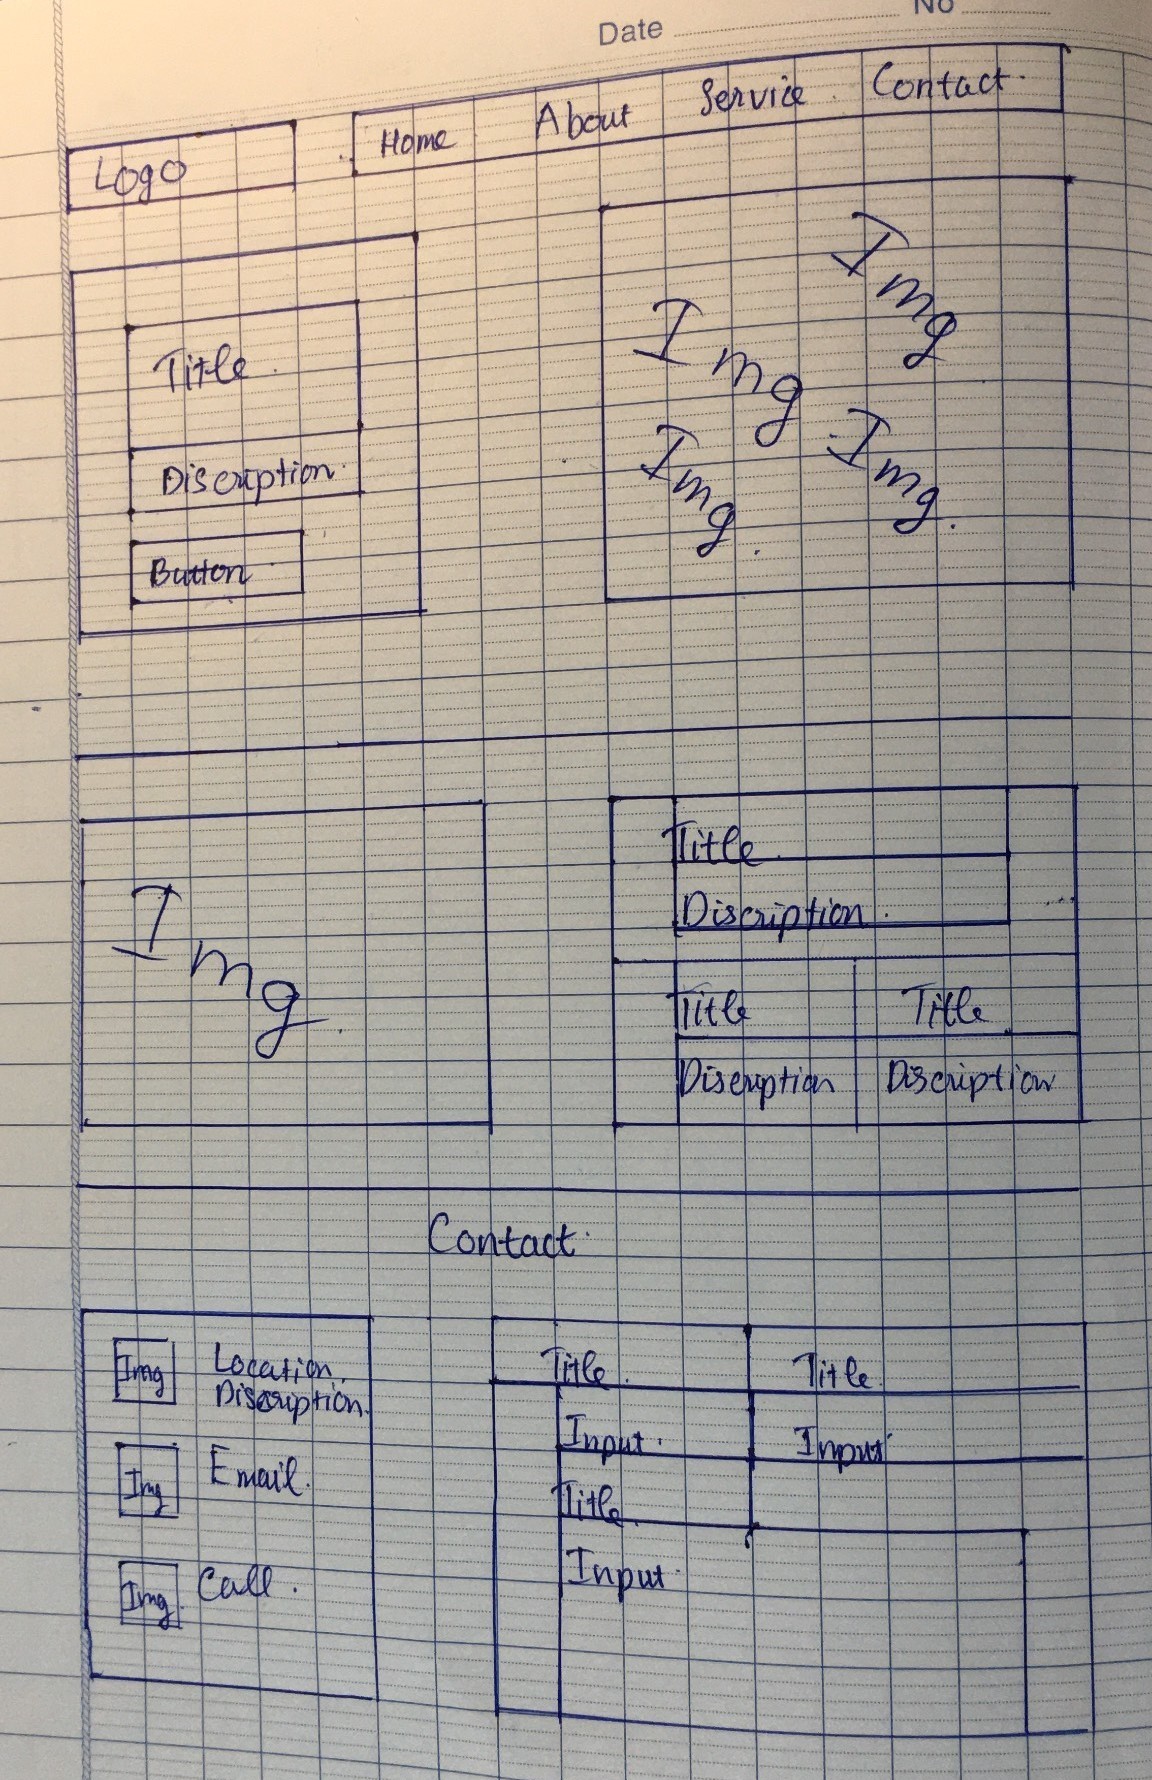 Date
No
Logo
Home About Service Contact.
Title
Discription.
Button
Img
Img
Img.
Img.
Img.
Title
Discription.
Title Title
Discription Discription
Contact.
Img Location.
Discription.
Img Email.
Img. Call.
Title. Title
Input. Input
Title
Input.